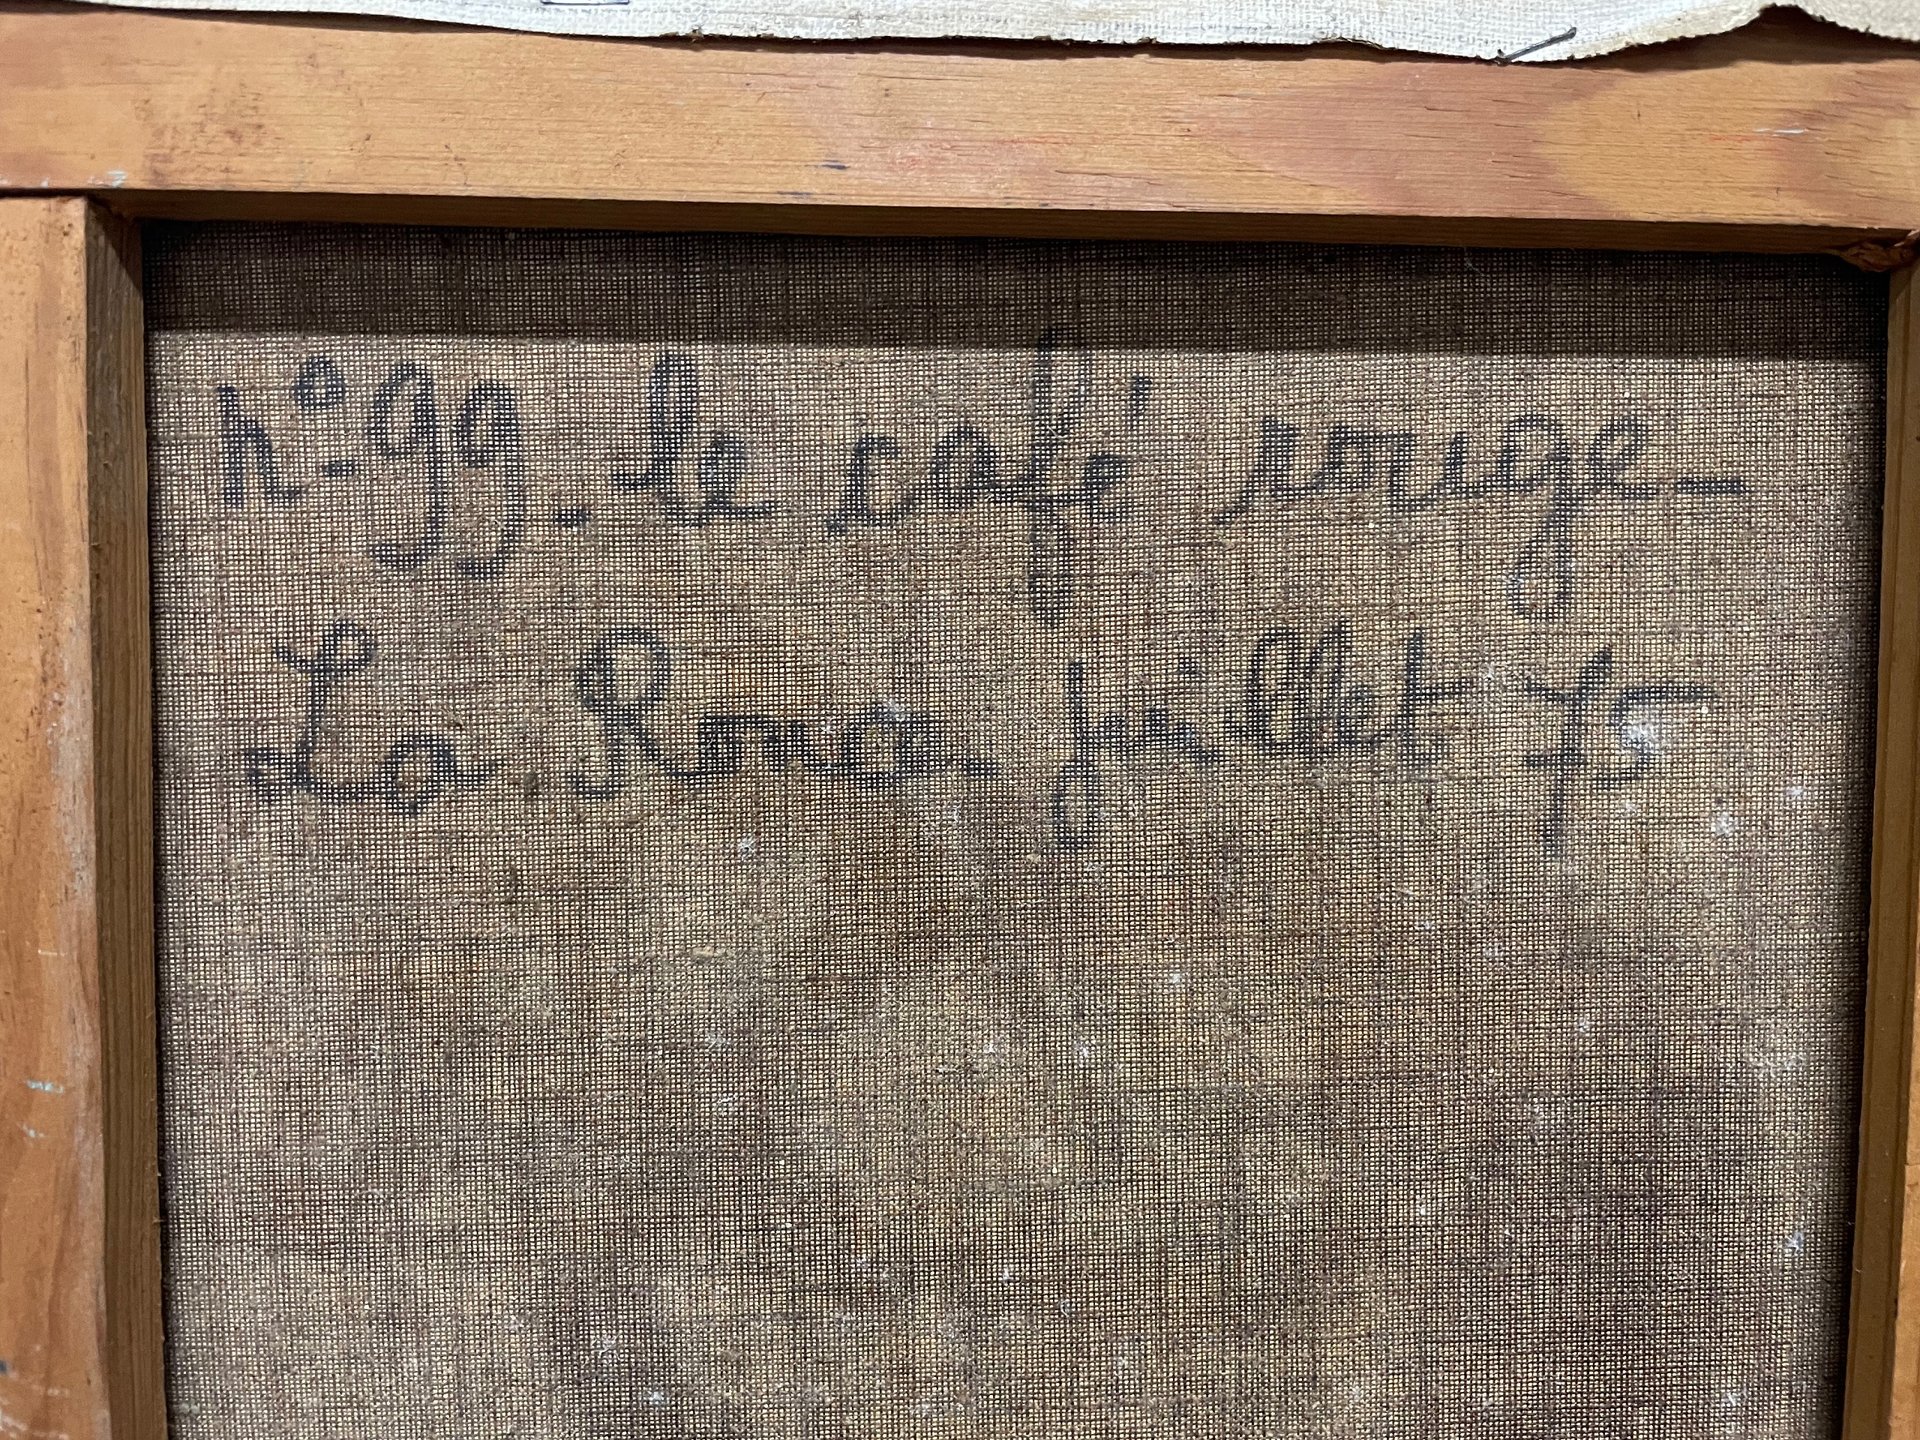 n°-99_ le café rouge_
La Rma_ juillet 75